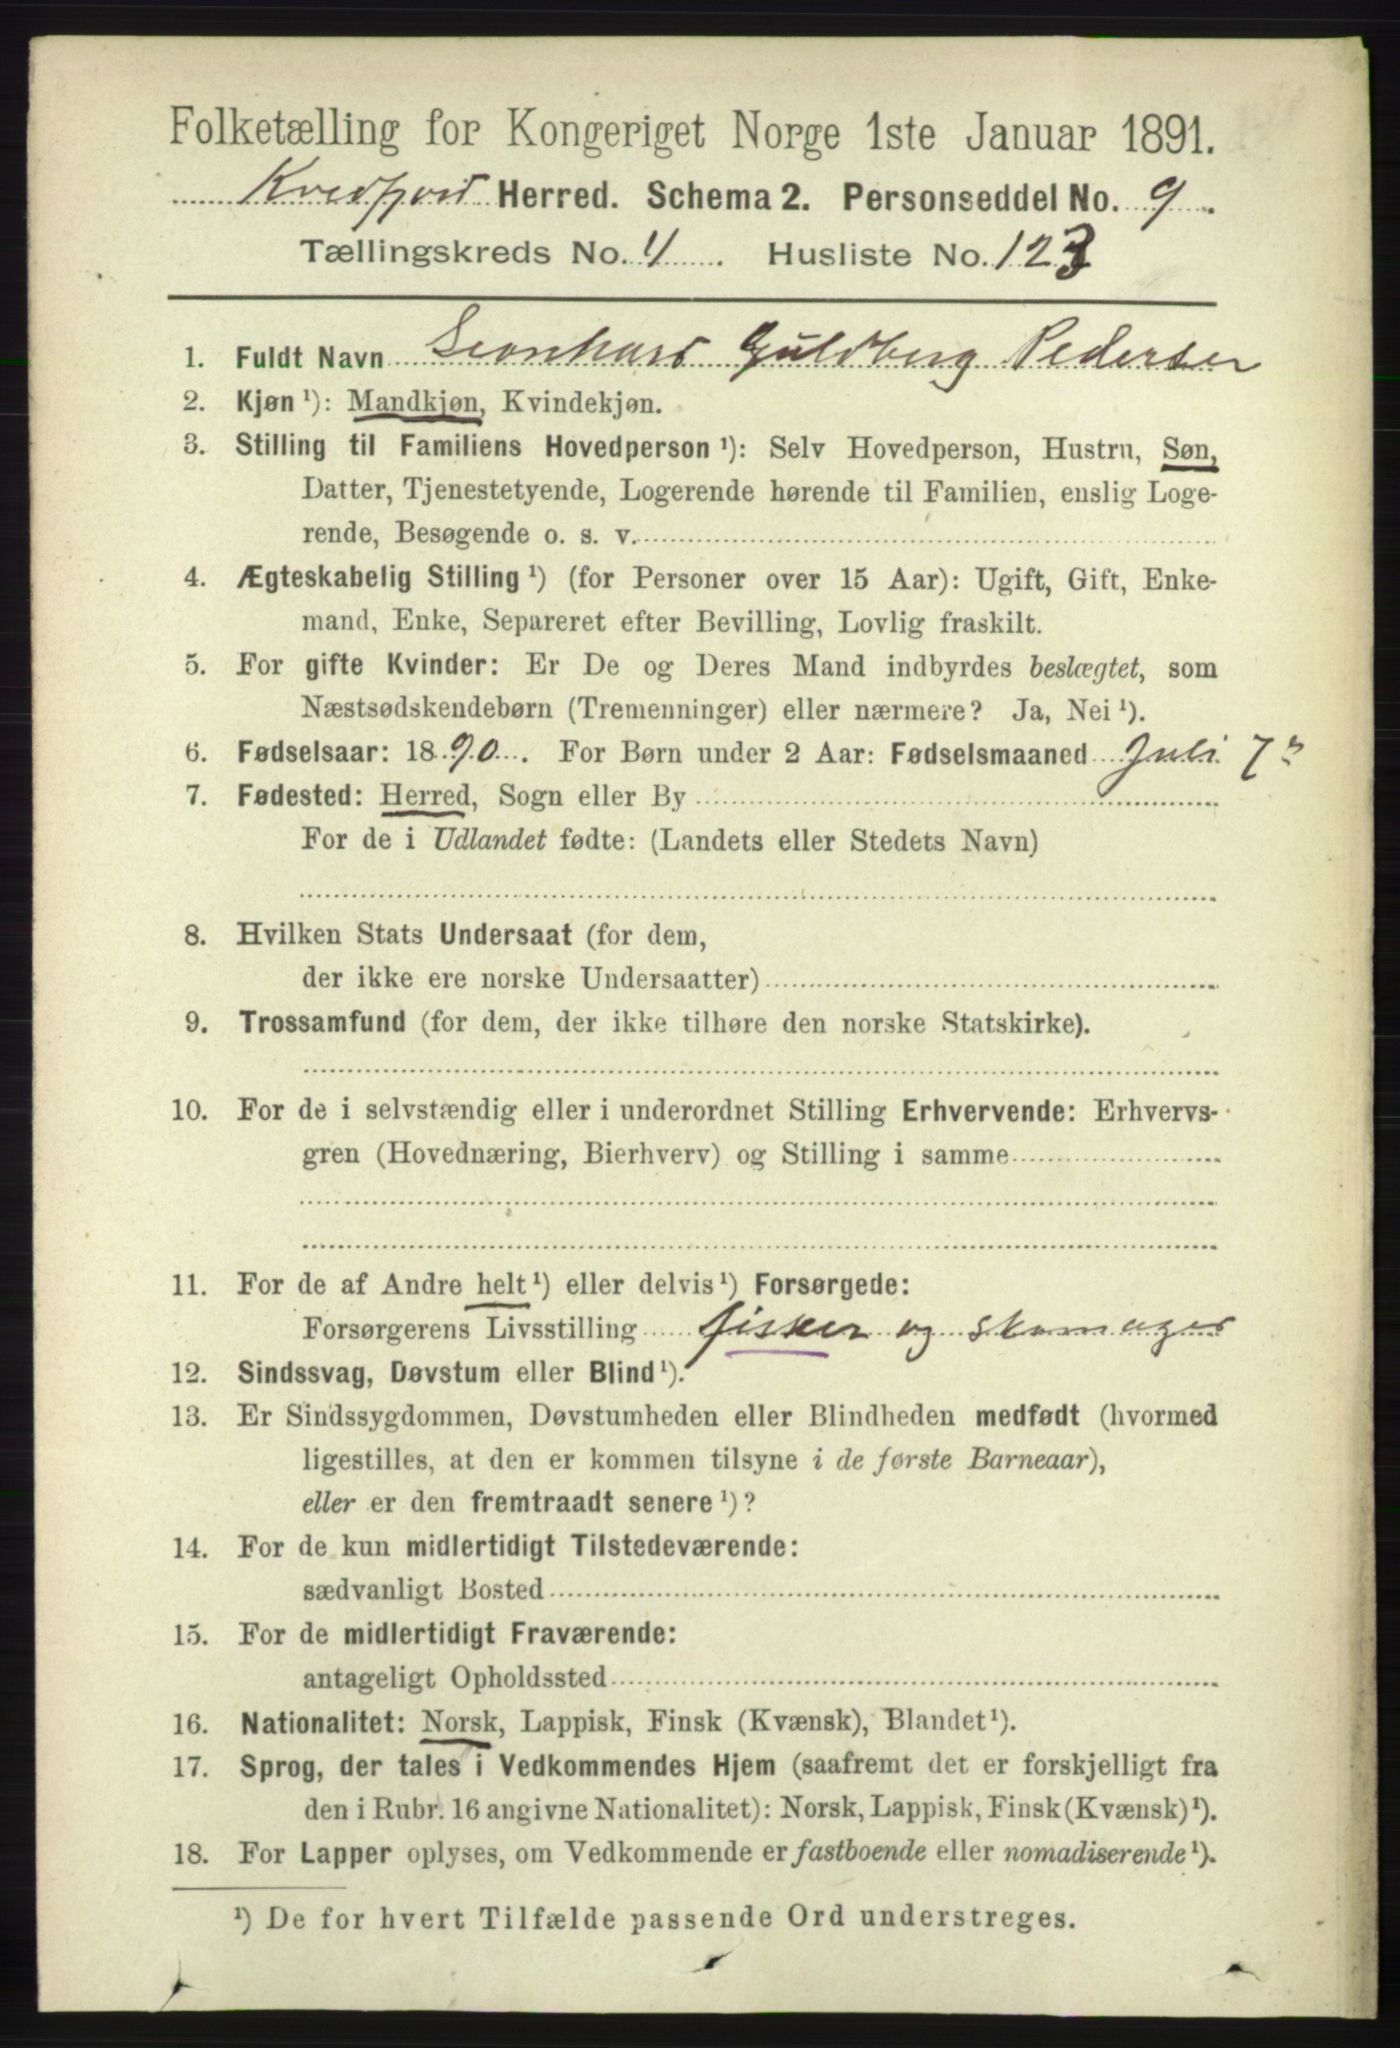 Folketælling for Kongeriget Norge 1ste Januar 1891.
Kvedfjord Herred. Schema 2. Personseddel No. 9.
Tællingskreds No. 4. Husliste No. 123
1. Fuldt Navn Leonhard Guldberg Pedersen
2. Kjøn ¹): Mandkjøn, Kvindekjøn.
3. Stilling til Familiens Hovedperson ¹): Selv Hovedperson, Hustru, Søn,
Datter, Tjenestetyende, Logerende hørende til Familien, enslig Loge-
rende, Besøgende o. s. v.
4. Ægteskabelig Stilling ¹) (for Personer over 15 Aar): Ugift, Gift, Enke-
mand, Enke, Separeret efter Bevilling, Lovlig fraskilt.
5. For gifte Kvinder: Er De og Deres Mand indbyrdes beslægtet, som
Næstsødskendebørn (Tremenninger) eller nærmere? Ja, Nei ¹).
6. Fødselsaar: 1890. For Børn under 2 Aar: Fødselsmaaned Juli 7
7. Fødested: Herred, Sogn eller By
For de i Udlandet fødte: (Landets eller Stedets Navn)
8. Hvilken Stats Undersaat (for dem,
der ikke ere norske Undersaatter)
9. Trossamfund (for dem, der ikke tilhøre den norske Statskirke).
10. For de i selvstændig eller i underordnet Stilling Erhvervende: Erhvervs-
gren (Hovednæring, Bierhverv) og Stilling i samme
11. For de af Andre helt ¹) eller delvis ¹) Forsørgede:
Forsørgerens Livsstilling fisker og skomager
12. Sindssvag, Døvstum eller Blind ¹).
13. Er Sindssygdommen, Døvstumheden eller Blindheden medfødt (hvormed
ligestilles, at den er kommen tilsyne i de første Barneaar),
eller er den fremtraadt senere ¹)?
14. For de kun midlertidigt Tilstedeværende:
sædvanligt Bosted
15. For de midlertidigt Fraværende:
antageligt Opholdssted
16. Nationalitet: Norsk, Lappisk, Finsk (Kvænsk), Blandet ¹).
17. Sprog, der tales i Vedkommendes Hjem (saafremt det er forskjelligt fra
den i Rubr. 16 angivne Nationalitet): Norsk, Lappisk, Finsk (Kvænsk) ¹).
18. For Lapper oplyses, om Vedkommende er fastboende eller nomadiserende ¹).
¹) De for hvert Tilfælde passende Ord understreges.